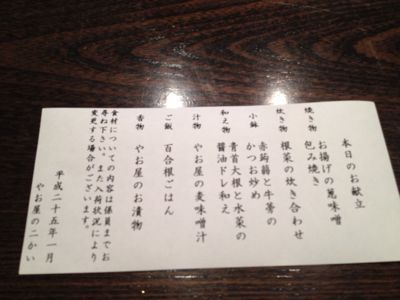 本日のお献立
焼き物 お揚げの葱味噌
包み焼き
炊き物 根菜の炊き合わせ
小鉢 赤蒟蒻と牛蒡の
かつお炒め
和え物 青首大根と水菜の
醤油ドレ和え
汁物 やお屋の麦味噌汁
ご飯 百合根ごはん
香物 やお屋のお漬物
食材についての内容は係員までお
尋ね下さい。また入荷状況により
変更する場合がございます。
平成二十五年一月
やお屋の二かい